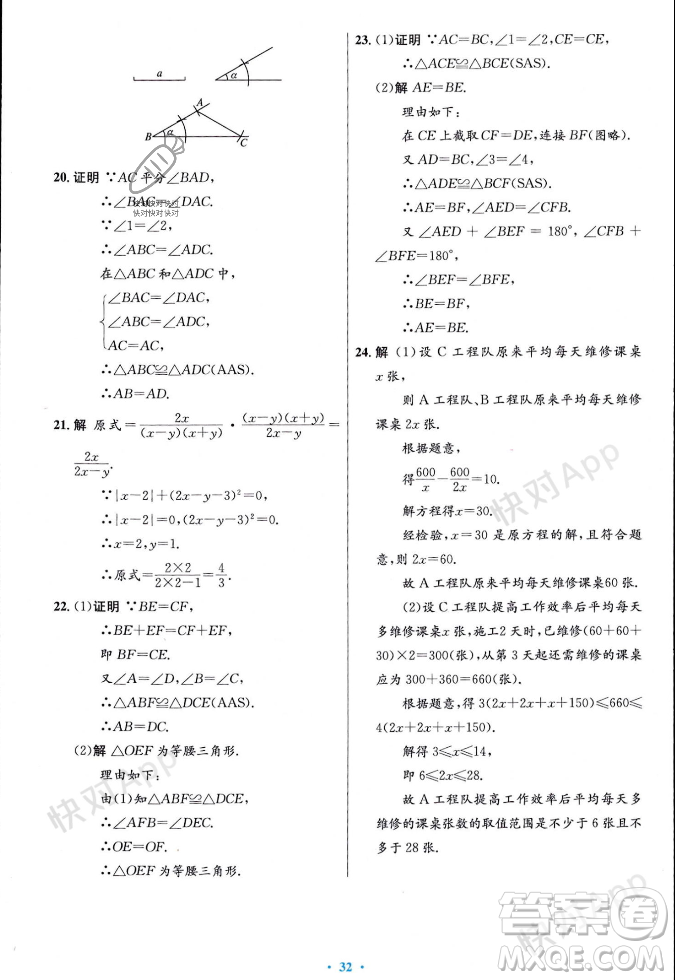 a
α
A
B
α
C
20. 证明 ∵AC平分∠BAD,
∴∠BAC=∠DAC.
快对快对快对
快对快对快对
∵∠1=∠2,
∴∠ABC=∠ADC.
在△ABC和△ADC中,
∠BAC=∠DAC,
∠ABC=∠ADC,
AC=AC,
∴△ABC≌△ADC(AAS).
∴AB=AD.
21. 解 原式=2x/((x-y)(x+y))·((x-y)(x+y))/(2x-y)=
2x/(2x-y).
∵|x-2|+(2x-y-3)²=0,
∴|x-2|=0,(2x-y-3)²=0.
∴x=2,y=1.
∴原式=(2×2)/(2×2-1)=4/3.
22. (1)证明 ∵BE=CF,
∴BE+EF=CF+EF.
即BF=CE.
又∠A=∠D,∠B=∠C,
∴△ABF≌△DCE(AAS).
∴AB=DC.
(2)解 △OEF为等腰三角形.
理由如下:
由(1)知△ABF≌△DCE,
∴∠AFB=∠DEC.
∴OE=OF.
∴△OEF为等腰三角形.
23. (1)证明 ∵AC=BC,∠1=∠2,CE=CE,
∴△ACE≌△BCE(SAS).
(2)解 AE=BE.
理由如下:
在CE上截取CF=DE,连接BF(图略).
又AD=BC,∠3=∠4,
∴△ADE≌△BCF(SAS).
∴AE=BF,∠AED=∠CFB.
又∠AED+∠BEF=180°,∠CFB+
∠BFE=180°,
∴∠BEF=∠BFE.
∴BE=BF.
∴AE=BE.
24. 解 (1)设C工程队原来平均每天维修课桌
x张,
则A工程队、B工程队原来平均每天维修课
桌2x张.
根据题意,
得600/x-600/2x=10.
解方程得x=30.
经检验,x=30是原方程的解,且符合题
意,则2x=60.
故A工程队原来平均每天维修课桌60张.
(2)设C工程队提高工作效率后平均每天
多维修课桌x张,施工2天时,已维修(60+60+
30)×2=300(张),从第3天起还需维修的课桌
应为300+360=660(张).
根据题意,得3(2x+2x+x+150)≤660≤
4(2x+2x+x+150).
解得3≤x≤14,
即6≤2x≤28.
故A工程队提高工作效率后平均每天多
维修的课桌张数的取值范围是不少于6张且不
多于28张.
快对App
快对App
快对App
快对App
答案圈
MXQE.COM
32